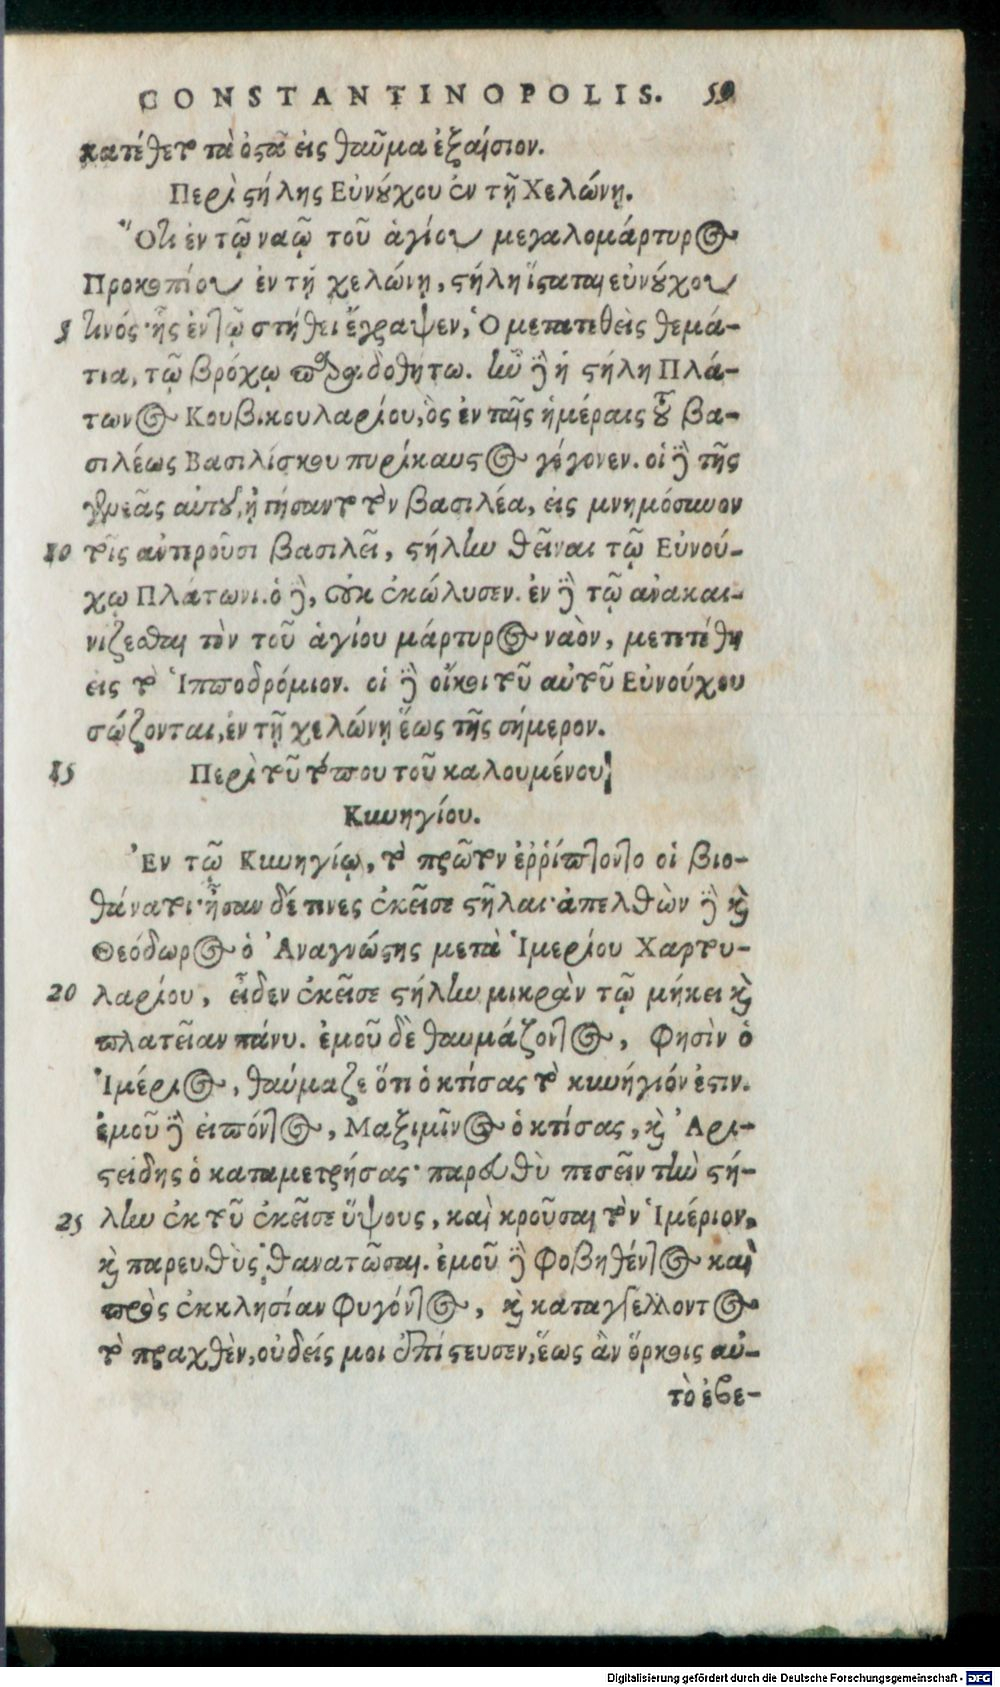 CONSTANTINOPOLIS. 59
κατέθετο τὰ ὀστᾶ εἰς θαῦμα ἐξαίσιον.
Περὶ στήλης Εὐνούχου ἐν τῇ Χελώνῃ.
Ὅτι ἐν τῷ ναῷ τοῦ ἁγίου μεγαλομάρτυρος
Προκοπίου ἐν τῇ χελώνῃ, στήλη ἵσταται εὐνούχου
5 τινός· ἧς ἐν τῷ στήθει ἔγραψεν, Ὁ μετατιθεὶς θεμά-
τια, τῷ βρόχῳ παραδοθήτω. ἦν δὲ ἡ στήλη Πλά-
τωνος Κουβικουλαρίου, ὃς ἐν ταῖς ἡμέραις τοῦ βα-
σιλέως Βασιλίσκου πυρίκαυστος γέγονεν. οἱ δὲ τῆς
γενεᾶς αὐτοῦ, ᾐτήσαντο τὸν βασιλέα, εἰς μνημόσυνον
10 τοῖς αὐτιροῦσι βασιλεῖ, στήλην θεῖναι τῷ Εὐνού-
χῳ Πλάτωνι. ὁ δὲ, οὐκ ἐκώλυσεν. ἐν δὲ τῷ ἀνακαι-
νίζεσθαι τὸν τοῦ ἁγίου μάρτυρος ναὸν, μετετέθη
εἰς τὸ Ἱπποδρόμιον. οἱ δὲ οἶκοι τοῦ αὐτοῦ Εὐνούχου
σώζονται, ἐν τῇ χελώνῃ ἕως τῆς σήμερον.
15 Περὶ τοῦ τόπου τοῦ καλουμένου
Κυνηγίου.
Ἐν τῷ Κυνηγίῳ, τὸ πρῶτον ἐῤῥίπτοντο οἱ βιο-
θάνατοι· ἦσαν δέ τινες ἐκεῖσε στῆλαι· ἀπελθὼν δὲ καὶ
Θεόδωρος ὁ Ἀναγνώστης μετὰ Ἱμερίου Χαρτου-
20 λαρίου, εἶδεν ἐκεῖσε στήλην μικρὰν τῷ μήκει καὶ
πλατεῖαν πάνυ. ἐμοῦ δὲ θαυμάζοντος, φησὶν ὁ
Ἱμέριος, θαύμαζε ὅτι ὁ κτίσας τὸ κυνήγιόν ἐστιν.
ἐμοῦ δὲ εἰπόντος, Μαξιμῖνος ὁ κτίσας, καὶ Ἀρι-
στείδης ὁ καταμετρήσας· παρευθὺ πεσεῖν τὴν στή-
25 λην ἐκ τοῦ ἐκεῖσε ὕψους, καὶ κροῦσαι τὸν Ἱμέριον,
καὶ παρευθὺς θανατῶσαι. ἐμοῦ δὲ φοβηθέντος καὶ
πρὸς ἐκκλησίαν φυγόντος, καὶ καταγγέλλοντος
τὸ πραχθὲν, οὐδείς μοι ἐπίστευσεν, ἕως ἂν ὅρκοις αὐ-
τὸ ἐβε-
Digitalisierung gefördert durch die Deutsche Forschungsgemeinschaft - DFG